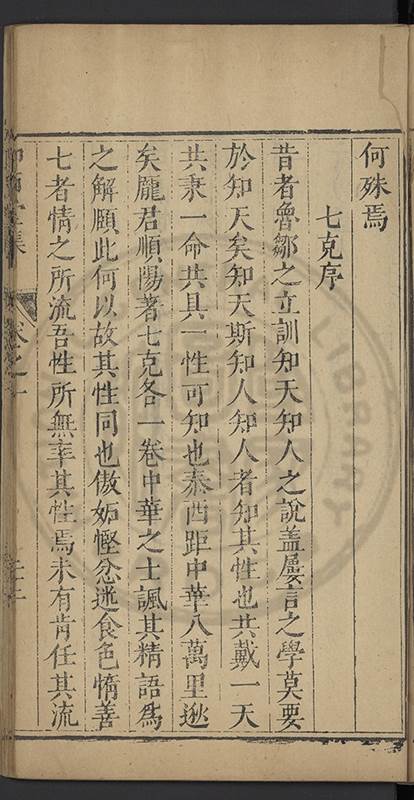 何殊焉
七克序
昔者魯鄒之立訓知天知人之說盖屢言之學莫要
於知天矣知天斯知人知人者知其性也共戴一天
共秉一命共具一性可知也泰西距中華八萬里遜
矣龐君順陽著七克各一卷中華之士諷其精語為
之解頤此何以故其性同也傲妬慳忿迷食色惰善
七者情之所流吾性所無率其性焉未有肯任其流
集
卷之一